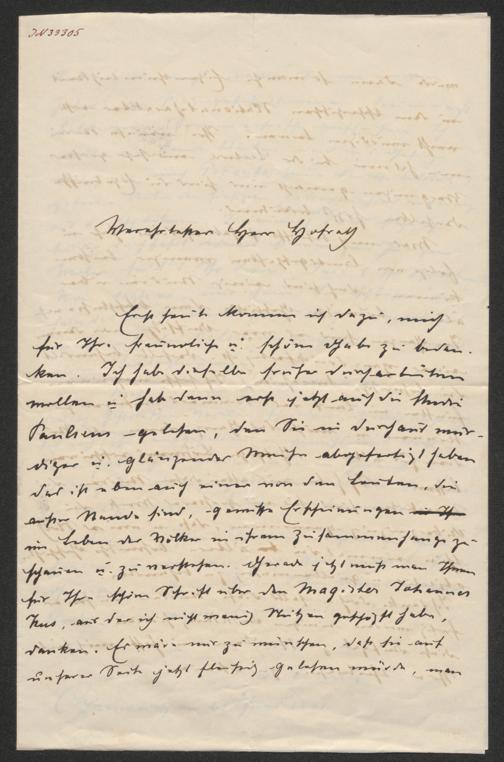 JN 33305
Verehrtester Herr Hofrath
Erst heute komme ich dazu, mich
für Ihre freundliche u. schöne Gabe zu bedan-
ken. Ich habe dieselbe früher durcharbeiten
wollen u. hab dann erst jetzt auch die Studie
Paulsens gelesen, den Sie in durchaus wür-
diger u. glänzender Weise abgefertigt haben
das ist eben auch einer von den Leuten, die
außer Stande sind, gewisse Erscheinungen
im Leben der Völker in ihrem Zusammenhange zu
schauen u. zu verstehen. Gerade jetzt muß man Ihnen
für Ihre schöne Schrift über den Magister Johannes
Hus, aus der ich nicht wenig Nutzen geschöpft habe,
danken. Es wäre nur zu wünschen, daß sie auf
unserer Seite jetzt fleißig gelesen würde, man